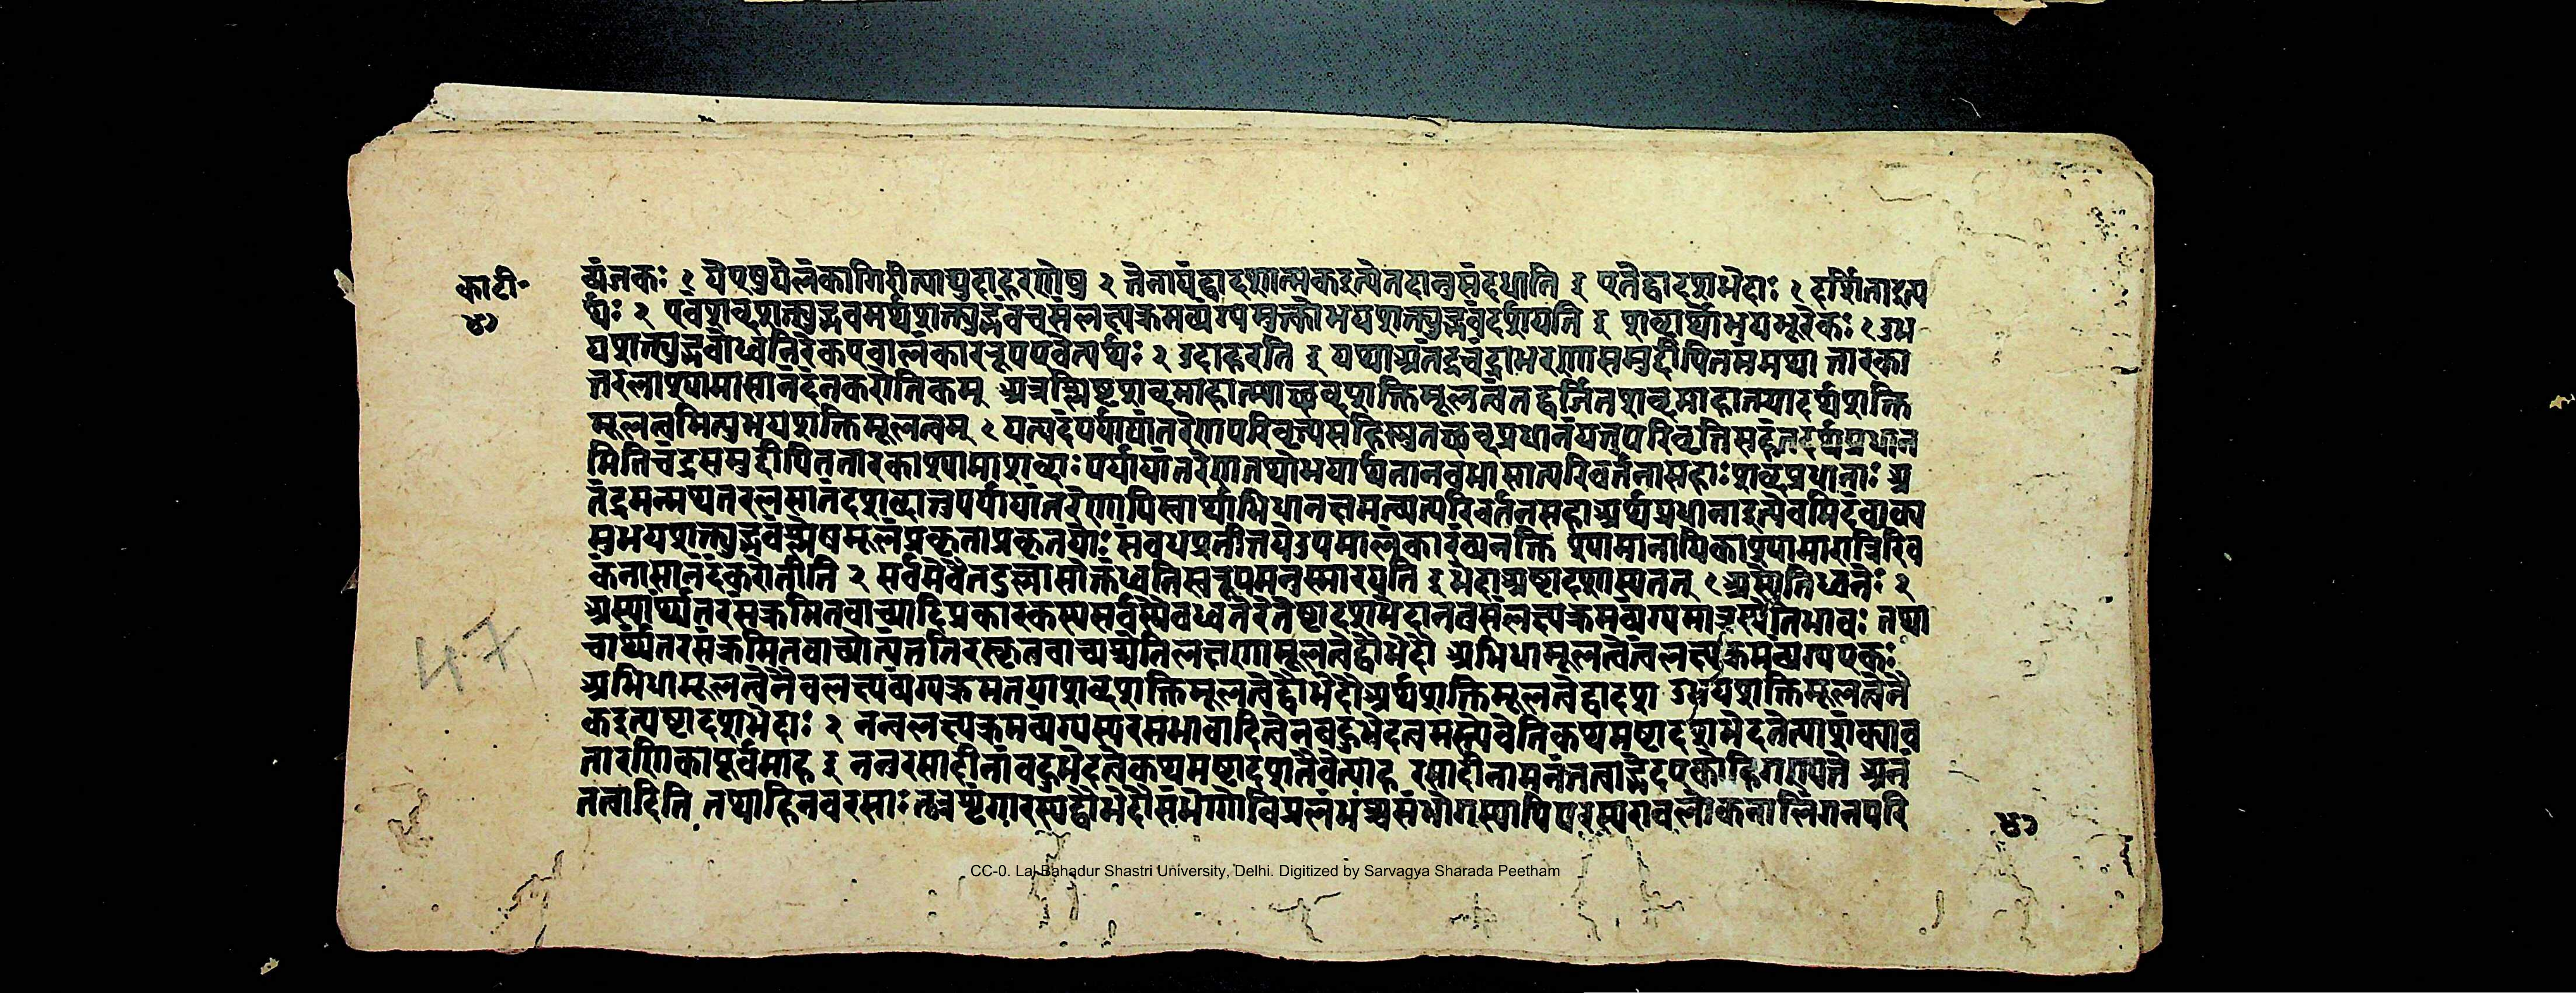 काटी॰
४७
व्यंजकः १ येषुषुयेलंकागिरीत्याद्युदाहरणेषु २ तेनायंद्वादशात्मकइत्येतदानुसंदधाति इ एतेद्वादशभेदाः १ दर्शिताइत्य
र्थः २ एवंशब्दशक्त्युद्भवमर्थशक्त्युद्भवंचसंलक्ष्यक्रमव्यंग्यमुक्तोभयशक्त्युद्भवंदर्शयति इ शब्दार्थोभयभूरेकः १ उभ
यशक्त्युद्भवोध्वनिरेकएवालंकाररूपएवेत्यर्थः २ उदाहरति इ यथाअतंद्रचंद्राभरणासमुद्दीपितमन्मथा तारका
तरलाश्यामासानंदंनकरोतिकम् अत्रश्लिष्टशब्दमाहात्म्याच्छब्दशक्तिमूलत्वंतद्वर्जितशब्दमाहात्म्यादर्थशक्ति
मूलत्वमित्युभयशक्तिमूलत्वम् १ यत्पदंपर्यायांतरेणपरिवृत्त्यसहिष्णुतच्छब्दप्रधानंयत्तुपरिवृत्तिसहंतदर्थप्रधान
मितिचंद्रसमुद्दीपिततारकाश्यामाशब्दाः पर्यायांतरेणतथोभयार्थतानवभासात्परिवर्तनासहाः शब्दप्रधानाः अ
तंद्रमन्मथतरलसानंदशब्दास्तुपर्यायांतरेणापिस्वार्थाभिधानक्षमत्वात्परिवर्तनसहाअर्थप्रधानाइत्येवमिदंवाक्य
मुभयशक्त्युद्भवंश्लेषमूलंप्रकृताप्रकृतयोः संबंधप्रतीतयेउपमालंकारंव्यनक्ति श्यामानायिकाश्यामारात्रिरिव
कंनासानंदंकरोतीति २ सर्वमेवैतदुल्लासोक्तंध्वनिस्वरूपमनुस्मारयति इ भेदाअष्टादशास्यतत् १ अस्येतिध्वनेः २
अस्यार्थांतरसंक्रमितवाच्यादिप्रकारकस्यसर्वस्यैवध्वनेरेतेष्टादशभेदानत्वसंलक्ष्यक्रमव्यंग्यमात्रस्येतिभावः तथा
चार्थांतरसंक्रमितवाच्योत्यंततिरस्कृतवाच्यश्चेतिलक्षणामूलत्वेद्वौभेदौ अभिधामूलत्वेत्वलक्ष्यक्रमव्यंग्यएकः
अभिधामूलत्वेनैवलक्ष्यव्यंग्यक्रमतयाशब्दशक्तिमूलत्वेद्वौभेदौअर्थशक्तिमूलत्वेद्वादश उभयशक्तिमूलत्वेनै
कइत्यष्टादशभेदाः २ नन्वलक्ष्यक्रमव्यंग्यस्यरसभावादित्वेनबहुभेदत्वमस्त्येवेतिकथमष्टादशभेदतेत्याशंक्याव
तारणिकापूर्वमाह इ ननुरसादीनांबहुभेदत्वेकथमष्टादशतेत्येवत्याह रसादीनामनंतत्वाद्भेदएकोहिगण्यते अनं
तत्वादिति तथाहिनवरसाः तत्रशृंगारस्यद्वौभेदौसंभोगोविप्रलंभश्चसंभोगस्यापिपरस्परावलोकनालिंगनपरि
४७
47
CC-0. Lal Bahadur Shastri University, Delhi. Digitized by Sarvagya Sharada Peetham